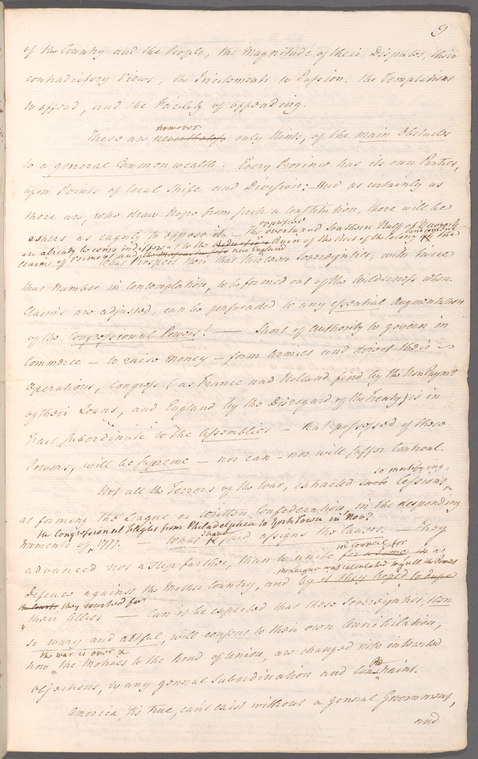 9
of the Country and the People, the Magnitude of their Disputes, their
contradictory Views, the Incitements to Passion, the Temptations
to offend, and the Facility of offending.
however
These are nevertheless only Hints, of the main Obstacles
to a general Commonwealth. Every Province has its own Parties,
upon Points of local Strife and Division: And as certainly as
there are, who draw Hope from such a Constitution, there will be
others as eager to oppose it. – the Southern Half of
are already by the to the of the Rest of the Colony & the
New England
claims of Vermont and
What Prospect then that thirteen Sovereignties, with twice
that Number in Contemplation, to be formed out of the Wilderness when
Claims are adjusted, can be persuaded to any essential Augmentation
of the Congressional Powers! — Short of Authority to govern in
Commerce – to raise Money – form Armies and direct their
Operations, Congress (as France and Holland find by the Nonpaymt
of their Loans, and England by the Disregard of the Treaty) is in
Fact subordinate to the Assemblies – But possessed of those
Powers, will be supreme – nor can – nor will suffer Controul.
so mortifying,
Not all the Terrors of the War, extracted such Cessions,
as forming the League or written Confederation, in the desponding
the Congressional Flight from Philadelphia to York Town in Novr
Moments of 1777. What shall assigns the Causes. — They
advanced not a step farther, than to unite in Council for
a Defence against the Mother Country, and by
they
their Allies — Can it be expected that these Sovereignties, then
so wary and artful, will consent to their own Annihilation,
the war is over &
now the Motives to the Bond of Union, are changed into
objections, to any general Subordination and Constraint.
America, tis true, can't exist without a general Government,
and